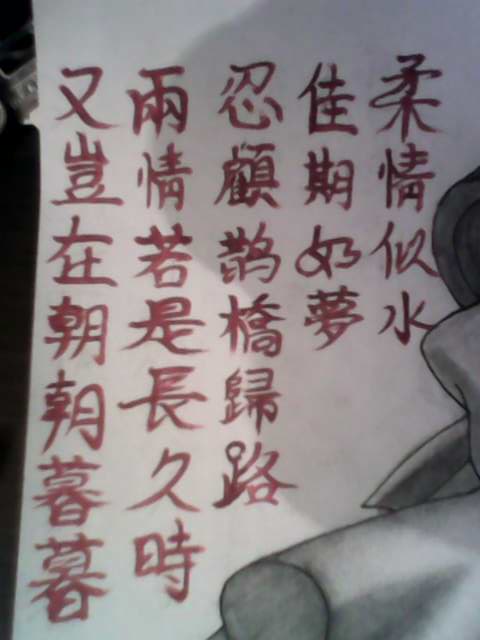 柔情似水
佳期如夢
忍顧鹊橋歸路
兩情若是長久時
又豈在朝朝暮暮